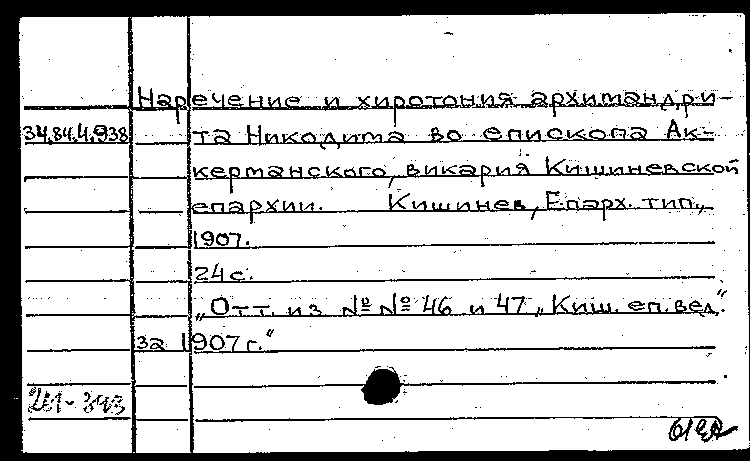 Наречение и хиротония архимандри-
34.84.4.938 та Никодима во епископа Ак-
керманского, викария Кишиневской
епархии. Кишинев, Епарх. тип.,
1907.
24 с.
„Отт. из №№ 46 и 47 „Киш. еп. вед."
за 1907 г."